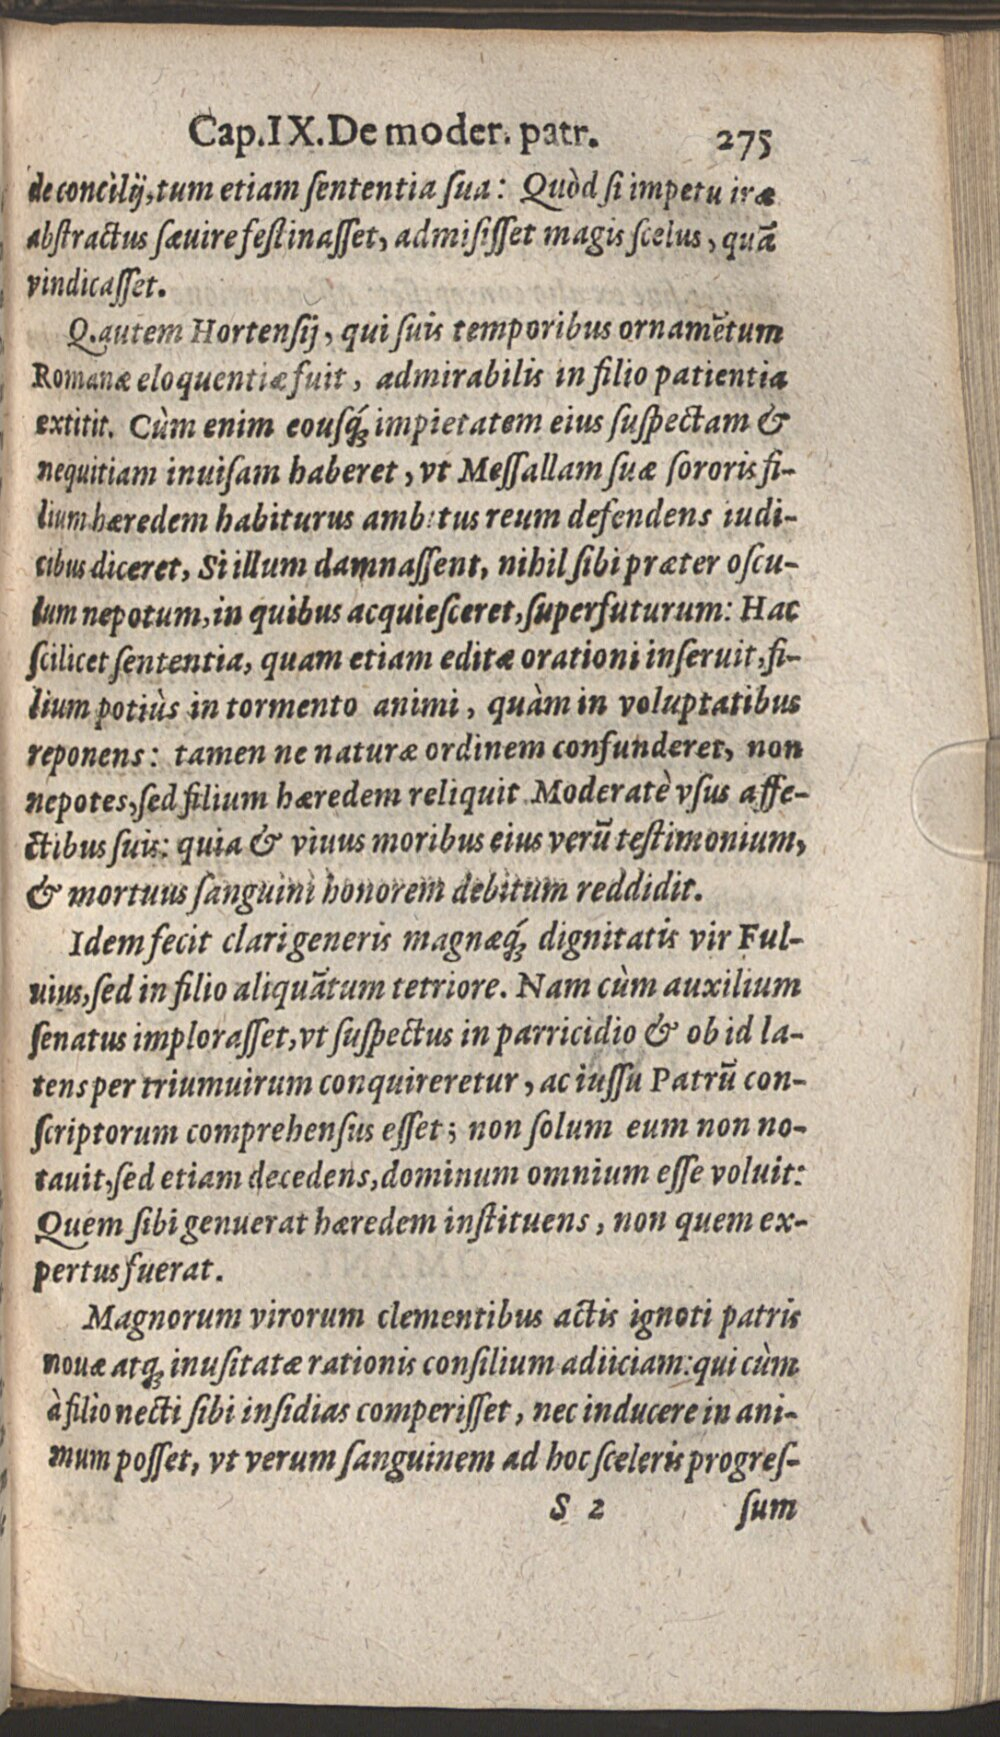 Cap.IX.De moder. patr. 275
de concilij, tum etiam ſententia ſua: Quòd ſi impetu iræ
abſtractus ſævire feſtinaſſet, admiſiſſet magis ſcelus, quā
vindicaſſet.
Q.autem Hortenſij, qui ſuis temporibus ornamētum
Romanæ eloquentiæ fuit, admirabilis in filio patientia
extitit. Cùm enim eouſq́; impietatem eius ſuſpectam &
nequitiam inuiſam haberet, vt Meſſallam ſuæ ſororis fi-
lium hæredem habiturus ambitus reum defendens iudi-
cibus diceret, Si illum damnaſſent, nihil ſibi præter oſcu-
lum nepotum, in quibus acquieſceret, ſuperfuturum: Hac
ſcilicet ſententia, quam etiam editæ orationi inſeruit, fi-
lium potiùs in tormento animi, quàm in voluptatibus
reponens: tamen ne naturæ ordinem confunderet, non
nepotes, ſed filium hæredem reliquit. Moderatè vſus affe-
ctibus ſuis: quia & viuus moribus eius verū teſtimonium,
& mortuus ſanguini honorem debitum reddidit.
Idem fecit clari generis magnæq́; dignitatis vir Ful-
uius, ſed in filio aliquātum tetriore. Nam cùm auxilium
ſenatus imploraſſet, vt ſuſpectus in parricidio & ob id la-
tens per triumuirum conquireretur, ac iuſſu Patrū con-
ſcriptorum comprehenſus eſſet; non ſolum eum non no-
tauit, ſed etiam decedens, dominum omnium eſſe voluit:
Quem ſibi genuerat hæredem inſtituens, non quem ex-
pertus fuerat.
Magnorum virorum clementibus actis ignoti patris
nouæ atq; inuſitatæ rationis conſilium adiiciam: qui cùm
à filio necti ſibi inſidias comperiſſet, nec inducere in ani-
mum poſſet, vt verum ſanguinem ad hoc ſceleris progreſ-
S 2 ſum